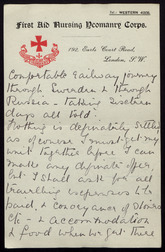 Tel: WESTERN
First Aid Nursing Yeomanry Corps.
192. Earls Court Road,
London, S.W.
Comfortable railway journey
through Sweden & through
Russia - taking sixteen
days all told.
Nothing is definitely settled
as of course I must get my
unit together before I can
make any definite offer,
but I shall ask for all
travelling expenses to be
paid, & conveyance of stores
etc - & accommodation
& food when we get there